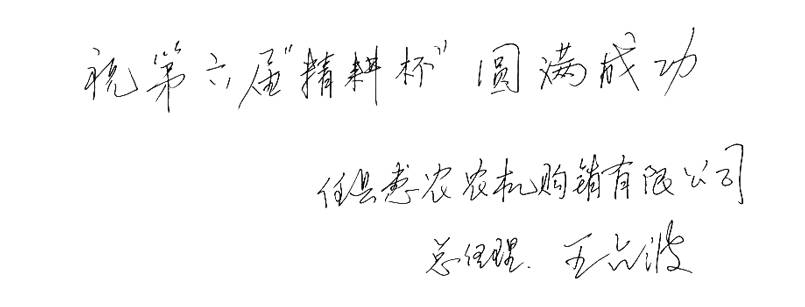 祝第六届"精耕杯"圆满成功
任县惠农农机购销有限公司
总经理. 王六波